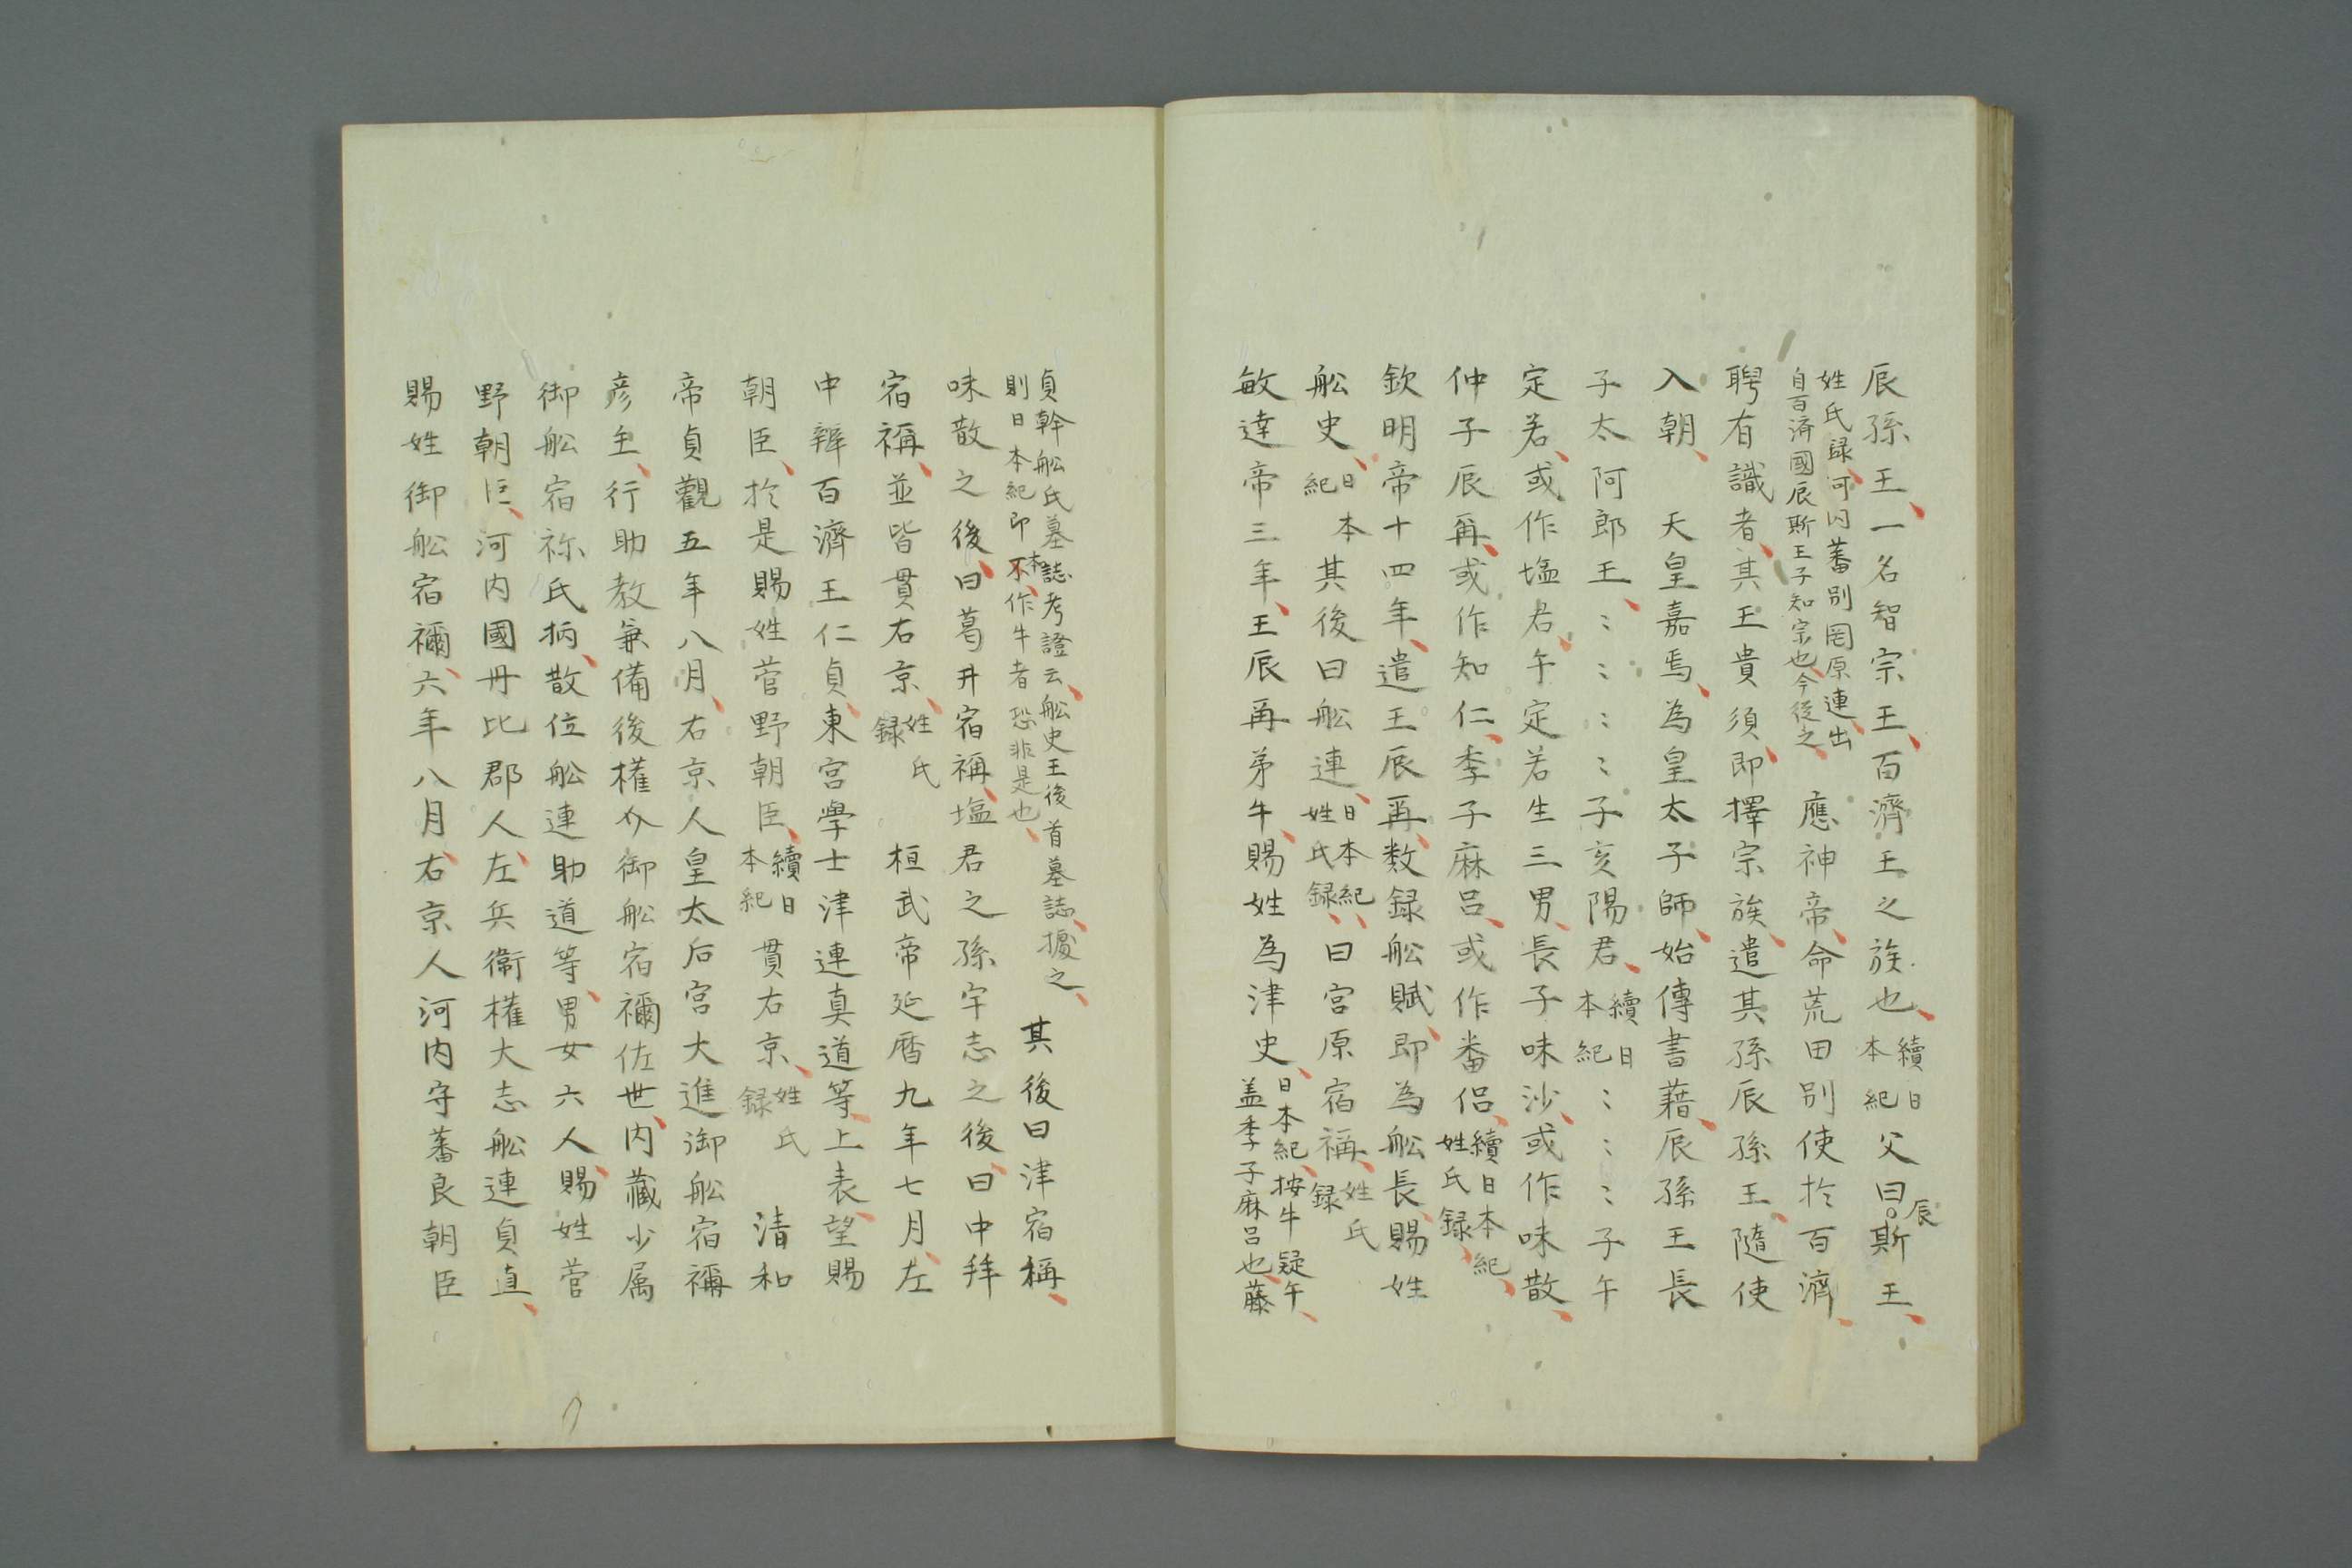 辰孫王一名智宗王百濟王之族也續日本紀父曰辰斯王
姓氏録河内蕃別岡原連出自百済國辰斯王子知宗也今從之 應神帝命荒田別使於百濟
聘有識者其王貴須即擇宗族遣其孫辰孫王隨使
入朝 天皇嘉焉為皇太子師始傳書藉辰孫王長
子太阿郎王〻〻〻〻子亥陽君續日本紀〻〻〻子午
定君或作塩君午定君生三男長子味沙或作味散
仲子辰再或作知仁季子麻呂或作番侶續日本紀姓氏録
欽明帝十四年遣王辰再数録舩賦即為舩長賜姓
舩史日本紀其後曰舩連日本紀姓氏録曰宮原宿祢姓氏録
敏達帝三年王辰再弟牛賜姓為津史日本紀按牛疑午盖季子麻呂也藤
貞幹舩氏墓誌考證云舩史王後首墓誌據之則日本紀印本不作牛者恐非是也 其後曰津宿祢
味散之後曰葛井宿祢塩君之孫宇志之後曰中拜
宿祢並皆貫右京姓氏録 桓武帝延暦九年七月左
中辨百濟王仁貞東宮學士津連真道等上表望賜
朝臣於是賜姓菅野朝臣續日本紀貫右京姓氏録 清和
帝貞觀五年八月右京人皇太后宮大進御舩宿禰
彦主行助教兼備後權介御舩宿禰佐世内藏少属
御舩宿祢氏柄散位舩連助道等男女六人賜姓菅
野朝臣河内國丹比郡人左兵衞權大志舩連貞直
賜姓御舩宿禰六年八月右京人河内守蕃良朝臣